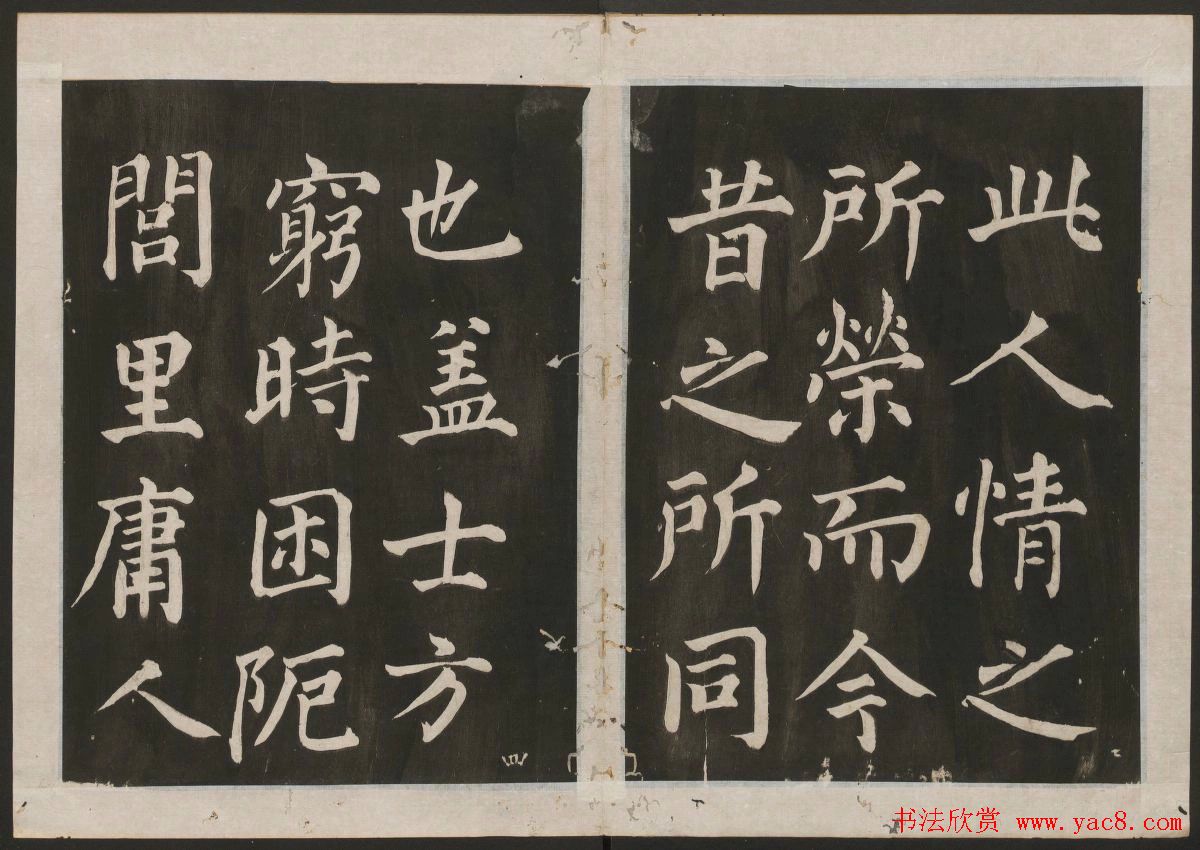 此人情之
所榮而今
昔之所同
也盖士方
窮時困阨
閭里庸人
四
书法欣赏 www.yac8.com